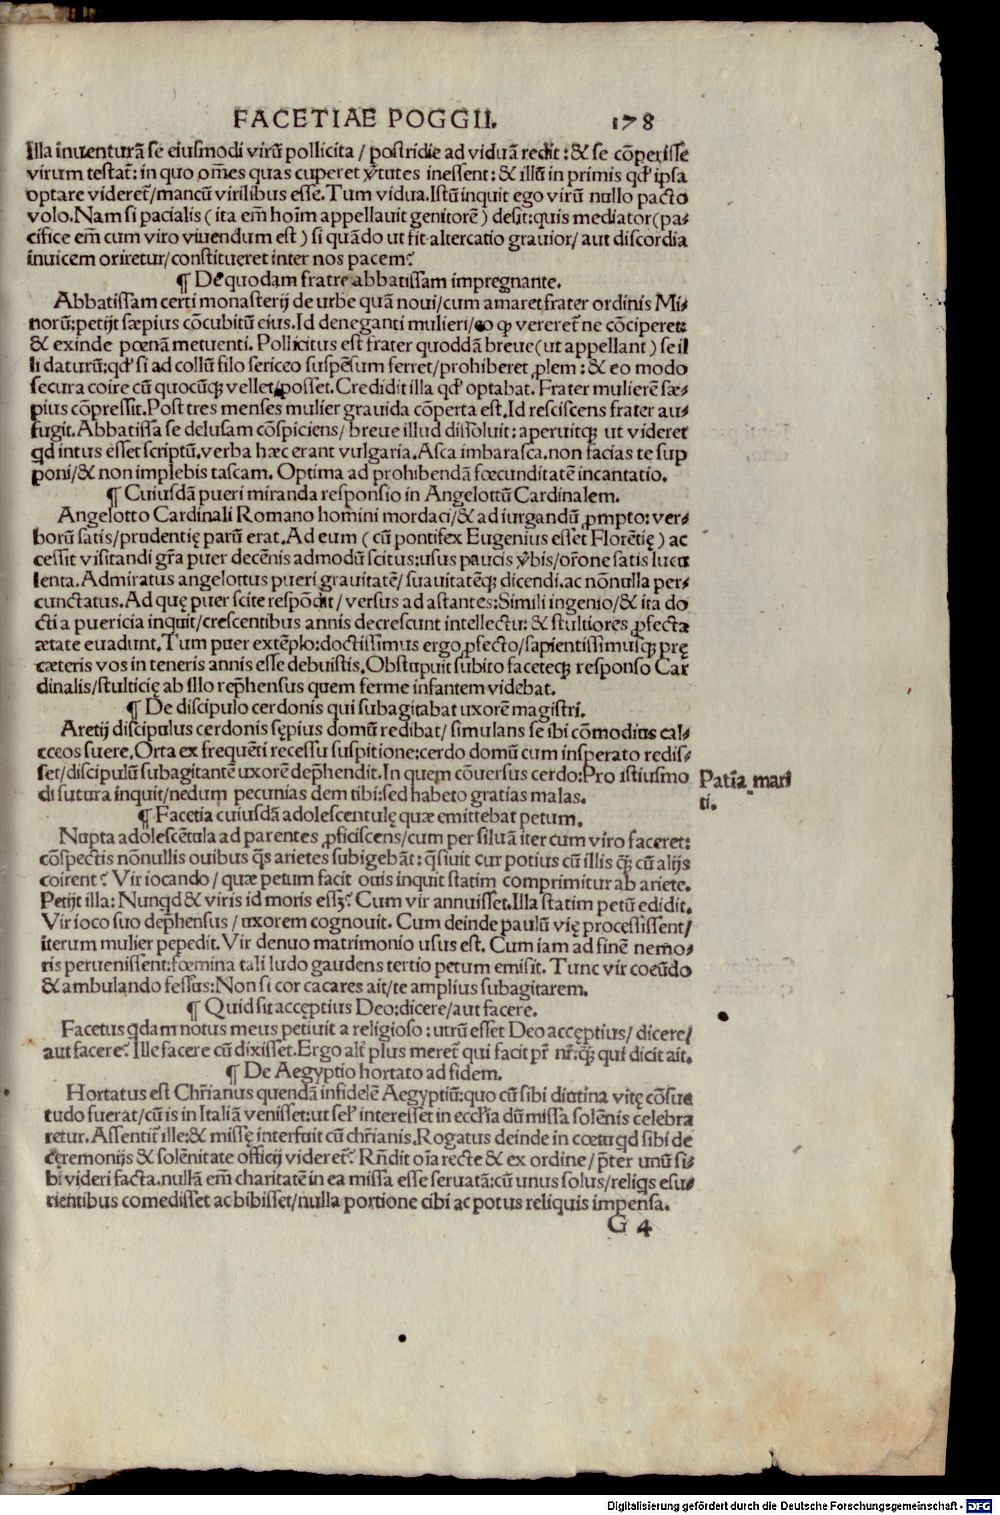 FACETIAE POGGII. 178
Illa inuenturā se eiusmodi virū pollicita / postridie ad viduā redit : & se cōperisse
virum testat̄: in quo om̄es quas cuperet v̄tutes inessent: & illū in primis qď ipsa
optare videret̄/mancū virilibus esse. Tum vidua. Istū inquit ego virū nullo pacto
volo. Nam si pacialis ( ita em̄ hoīm appellauit genitorē) desit: quis mediator (pa⸗
cifice em̄ cum viro viuendum est ) si quādo ut fit altercatio grauior/ aut discordia
inuicem oriretur/constitueret inter nos pacem?
¶ De quodam fratre abbatissam impregnante.
Abbatissam certi monasterij de urbe quā noui/cum amaret frater ordinis Mi⸗
norū: petijt sæpius cōcubitū eius. Id deneganti mulieri/eo ꝙ vereret̄ ne cōciperet:
& exinde pœnā metuenti. Pollicitus est frater quoddā breue (ut appellant) se il
li daturū: qď si ad collū filo sericeo suspēsum ferret/prohiberet ꝓlem : & eo modo
secura coire cū quocūqꝫ vellet posset. Credidit illa qď optabat. Frater mulierē sæ⸗
pius cōpressit. Post tres menses mulier grauida cōperta est. Id resciscens frater au⸗
fugit. Abbatissa se delusam cōspiciens/ breue illud dissoluit: aperuitqꝫ ut videret
qd intus esset scriptū. verba hæc erant vulgaria. Asca imbarasca. non facias te sup
poni/& non implebis tascam. Optima ad prohibendā fœcunditatē incantatio.
¶ Cuiusdā pueri miranda responsio in Angelottū Cardinalem.
Angelotto Cardinali Romano homini mordaci/& ad iurgandū ꝓmpto: ver⸗
borū satis/prudentię parū erat. Ad eum ( cū pontifex Eugenius esset Florētię ) ac
cessit visitandi gr̄a puer decēnis admodū scitus: usus paucis v̄bis/ or̄one satis lucu
lenta. Admiratus angelottus pueri grauitatē/ suauitatēqꝫ dicendi. ac nōnulla per⸗
cunctatus. Ad quę puer scite respōdit / versus ad astantes: Simili ingenio/& ita do
cti a puericia inquit/crescentibus annis decrescunt intellectu: & stultiores ꝓfecta
ætate euadunt. Tum puer extēplo: doctissimus ergo ꝓfecto/sapientissimusqꝫ prę
cæteris vos in teneris annis esse debuistis. Obstupuit subito faceteqꝫ responso Car
dinalis/stulticię ab illo rep̄hensus quem ferme infantem videbat.
¶ De discipulo cerdonis qui subagitabat uxorē magistri.
Aretij discipulus cerdonis sępius domū redibat/ simulans se ibi cōmodius cal⸗
cceos suere. Orta ex frequēti recessu suspitione: cerdo domū cum insperato redis⸗
set/discipulū subagitantē uxorē dep̄hendit. In quem cōuersus cerdo: Pro istiusmo
di sutura inquit/nedum pecunias dem tibi: sed habeto gratias malas.
Patiā mari
ti.
¶ Facetia cuiusdā adolescentulę quæ emittebat petum.
Nupta adolescētula ad parentes ꝓficiscens/cum per siluā iter cum viro faceret:
cōspectis nōnullis ouibus q̄s arietes subigebāt: q̄siuit cur potius cū illis q̄ꝫ cū alijs
coirent? Vir iocando / quæ petum facit ouis inquit statim comprimitur ab ariete.
Petijt illa: Nunqd & viris id moris essꝫ? Cum vir annuisset. Illa statim petū edidit.
Vir ioco suo dep̄hensus / uxorem cognouit. Cum deinde paulū vię processissent/
iterum mulier pepedit. Vir denuo matrimonio usus est. Cum iam ad finē nemo⸗
ris peruenissent: fœmina tali ludo gaudens tertio petum emisit. Tunc vir coeūdo
& ambulando fessus: Non si cor cacares ait/te amplius subagitarem.
¶ Quid sit acceptius Deo: dicere/aut facere.
Facetus qdam notus meus petiuit a religioso : utrū esset Deo acceptius/ dicere/
aut facere? Ille facere cū dixisset. Ergo alt̄ plus meret̄ qui facit pr̄ nr̄: q̄ꝫ qui dicit ait.
¶ De Aegyptio hortato ad fidem.
Hortatus est Chr̄ianus quendā infidelē Aegyptiū: quo cū sibi diutina vitę cōsue
tudo fuerat/cū is in Italiā venisset: ut sel' interesset in eccľia dū missa solēnis celebra
retur. Assentit̄ ille: & missę interfuit cū chr̄ianis. Rogatus deinde in cœtu qd sibi de
cęremonijs & solēnitate officij videret̄? Rn̄dit oīa recte & ex ordine / p̄ter unū si⸗
bi videri facta. nullā em̄ charitatē in ea missa esse seruatā: cū unus solus/reliqs esu⸗
rientibus comedisset ac bibisset/nulla portione cibi ac potus reliquis impensa.
G 4
Digitalisierung gefördert durch die Deutsche Forschungsgemeinschaft - DFG